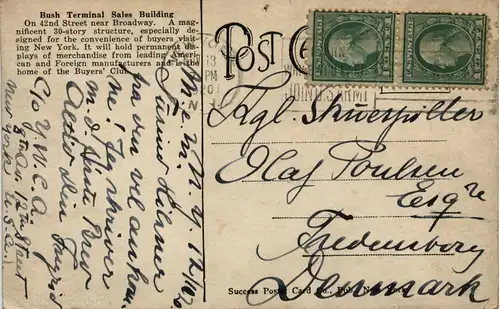 Bush Terminal Sales Building
On 42nd Street near Broadway. A mag-
nificent 30-story structure, especially de-
signed for the convenience of buyers visit-
ing New York. It will hold permanent dis-
plays of merchandise from leading Ameri-
can and Foreign manufacturers and is the
home of the Buyers' Club.
POST CA
N. Y.
Tusind Hilsner
paa en vel ankom
me! Jeg skriver
snart Brev
Altid din Ingrid
c/o Y. W. C. A.
8th Av. 12th Street
New York U. S. A.
Kgl.
Olaf Poulsen
Esqre
Fredensborg
Denmark
Success Postal Card Co., Pub., New York